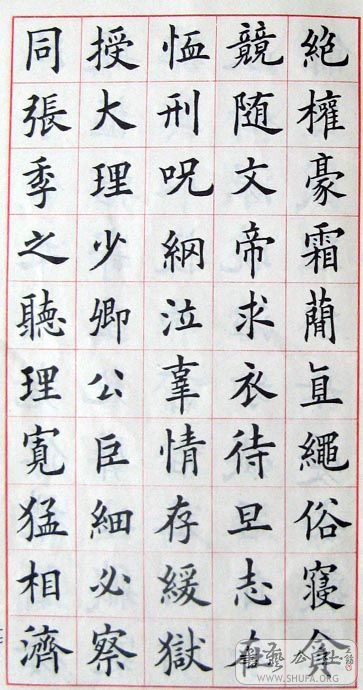 絕權豪霜蕳直繩俗寢貪
競随文帝求衣待旦志在
恤刑呪網泣辜情存緩獄
授大理少卿公臣細必察
同張季之聽理寬猛相濟
WWW.SHUFA.ORG